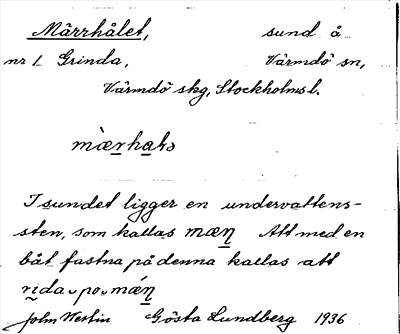 Märrhålet, sund å
nr 1 Grinda, Värmdö sn,
Värmdö skg, Stockholms l.
mæ̀rhalə
I sundet ligger en undervattens-
sten, som kallas mæn̲ Att med en
båt fastna på denna kallas att
rida po mǽn̲
John Westin Gösta Lundberg 1936